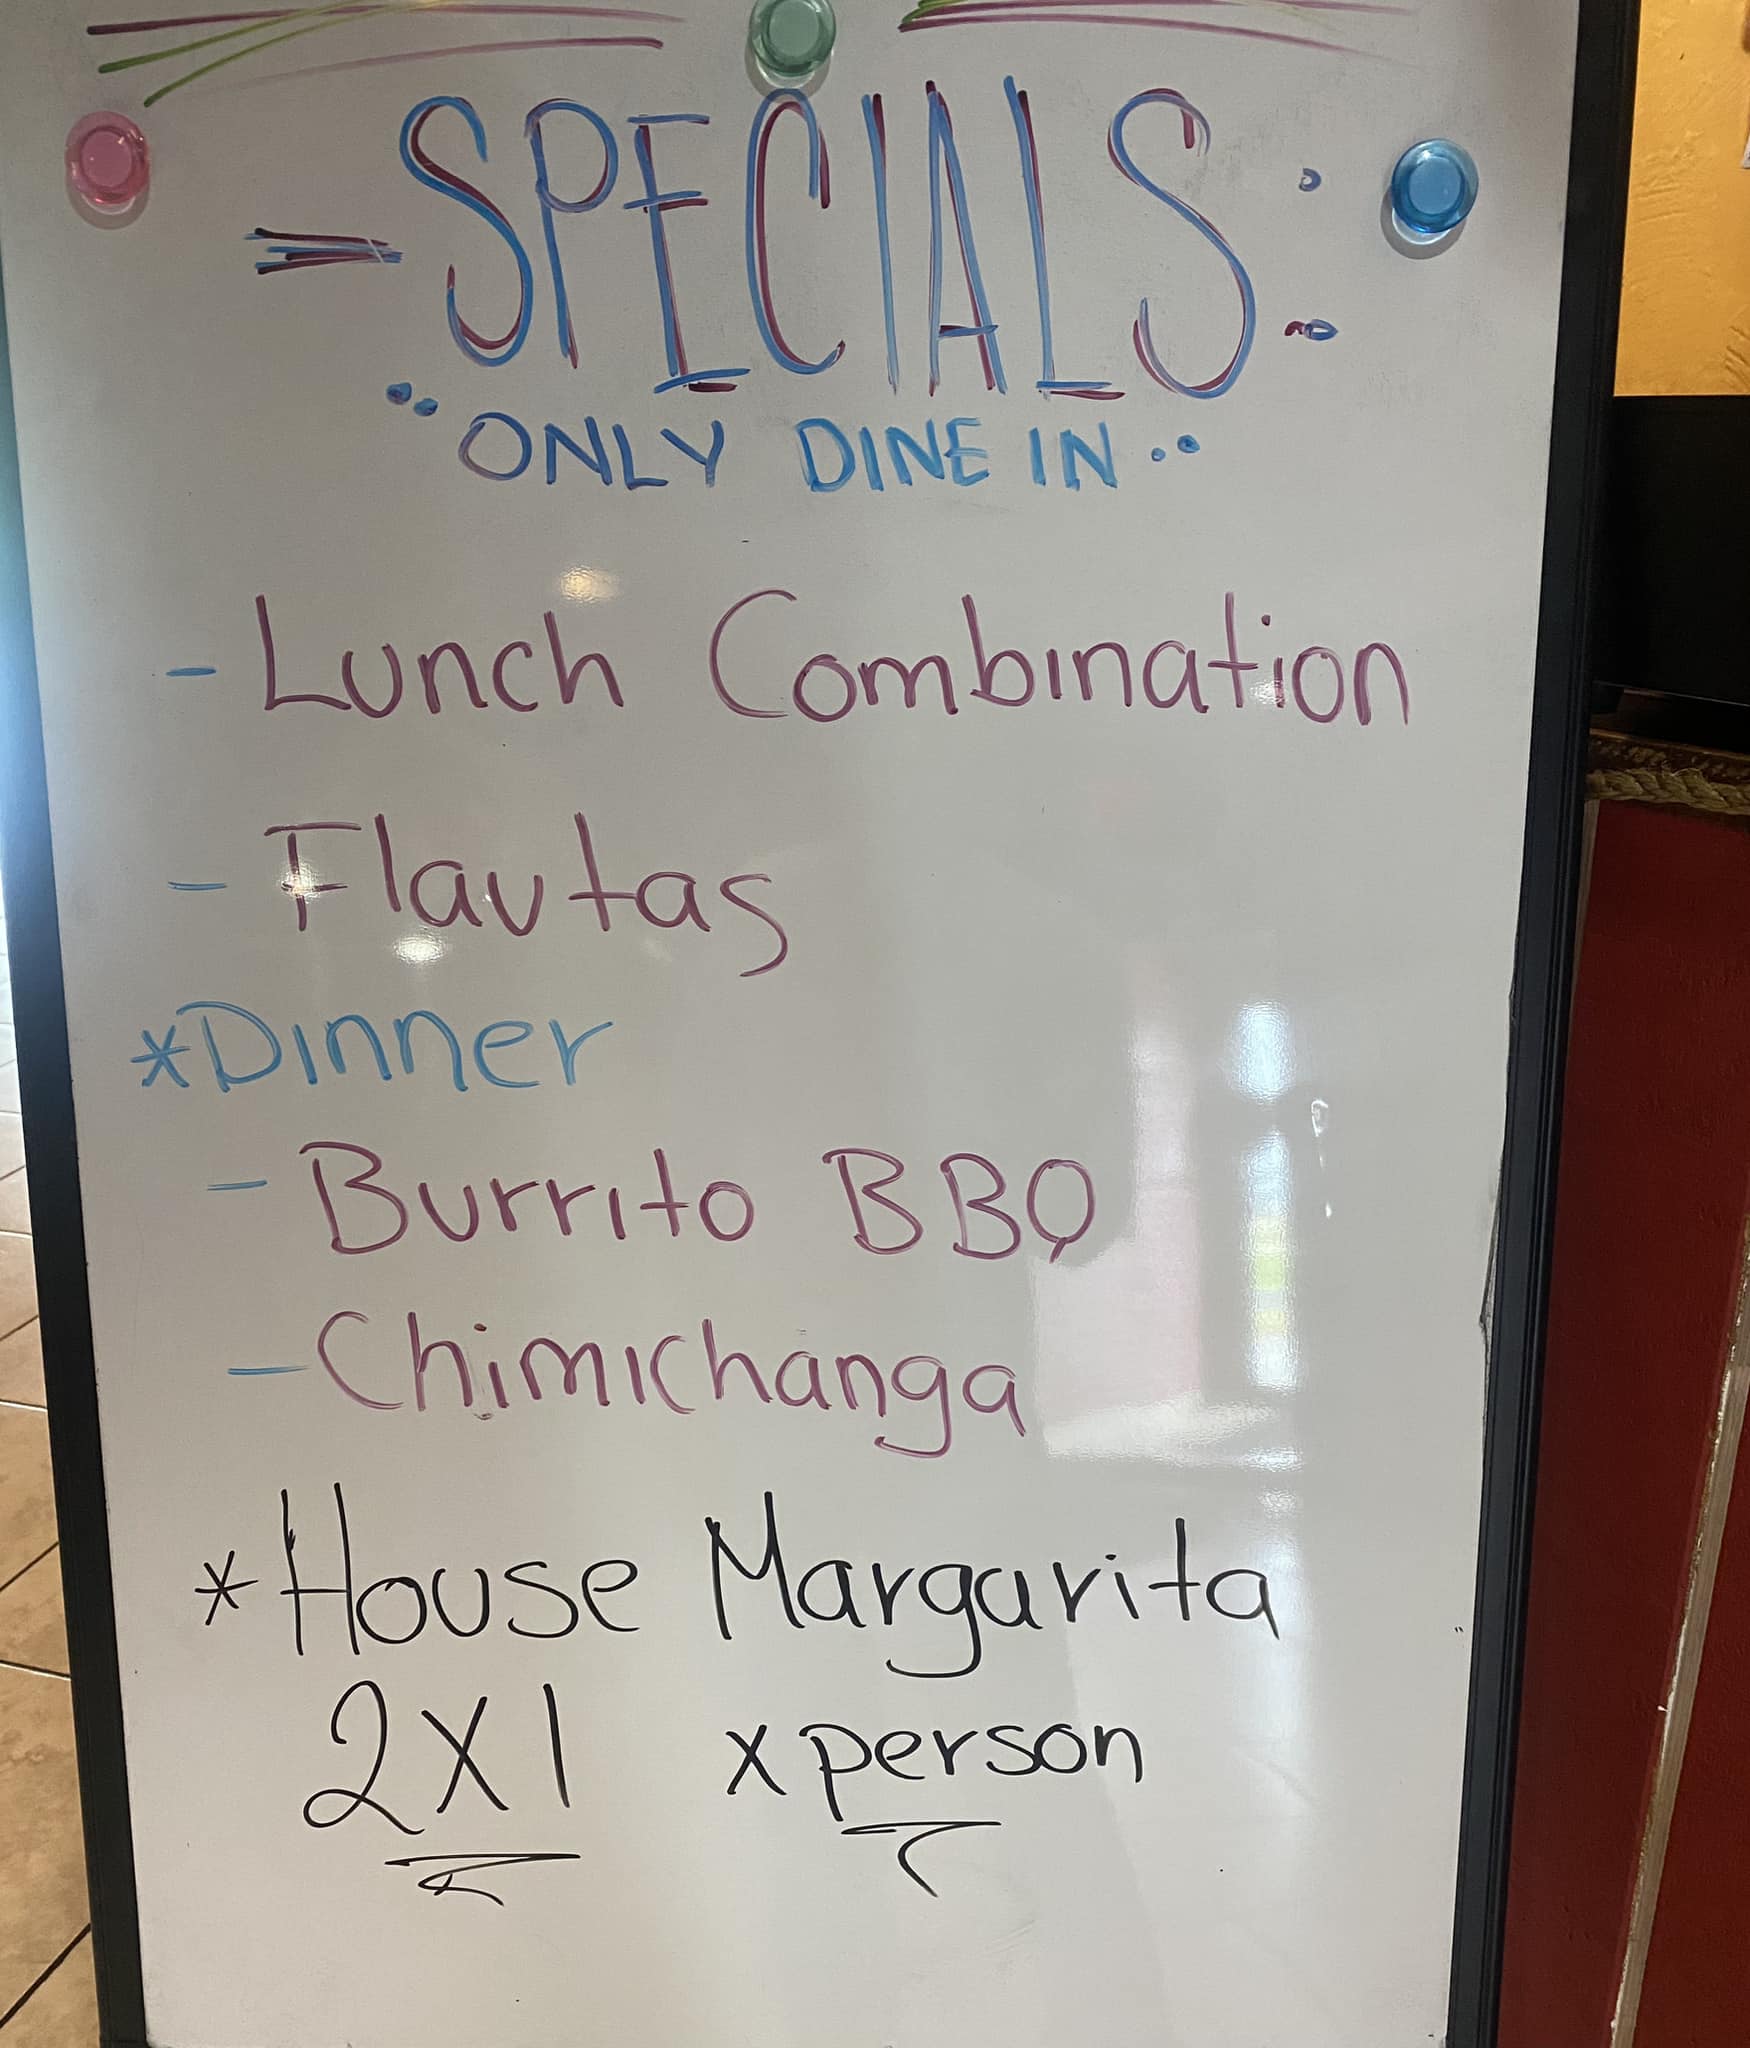 - SPECIALS:
.. ONLY DINE IN ..
- Lunch Combination
- Flautas
*Dinner
- Burrito BBQ
- Chimichanga
*House Margarita
2X1 x person